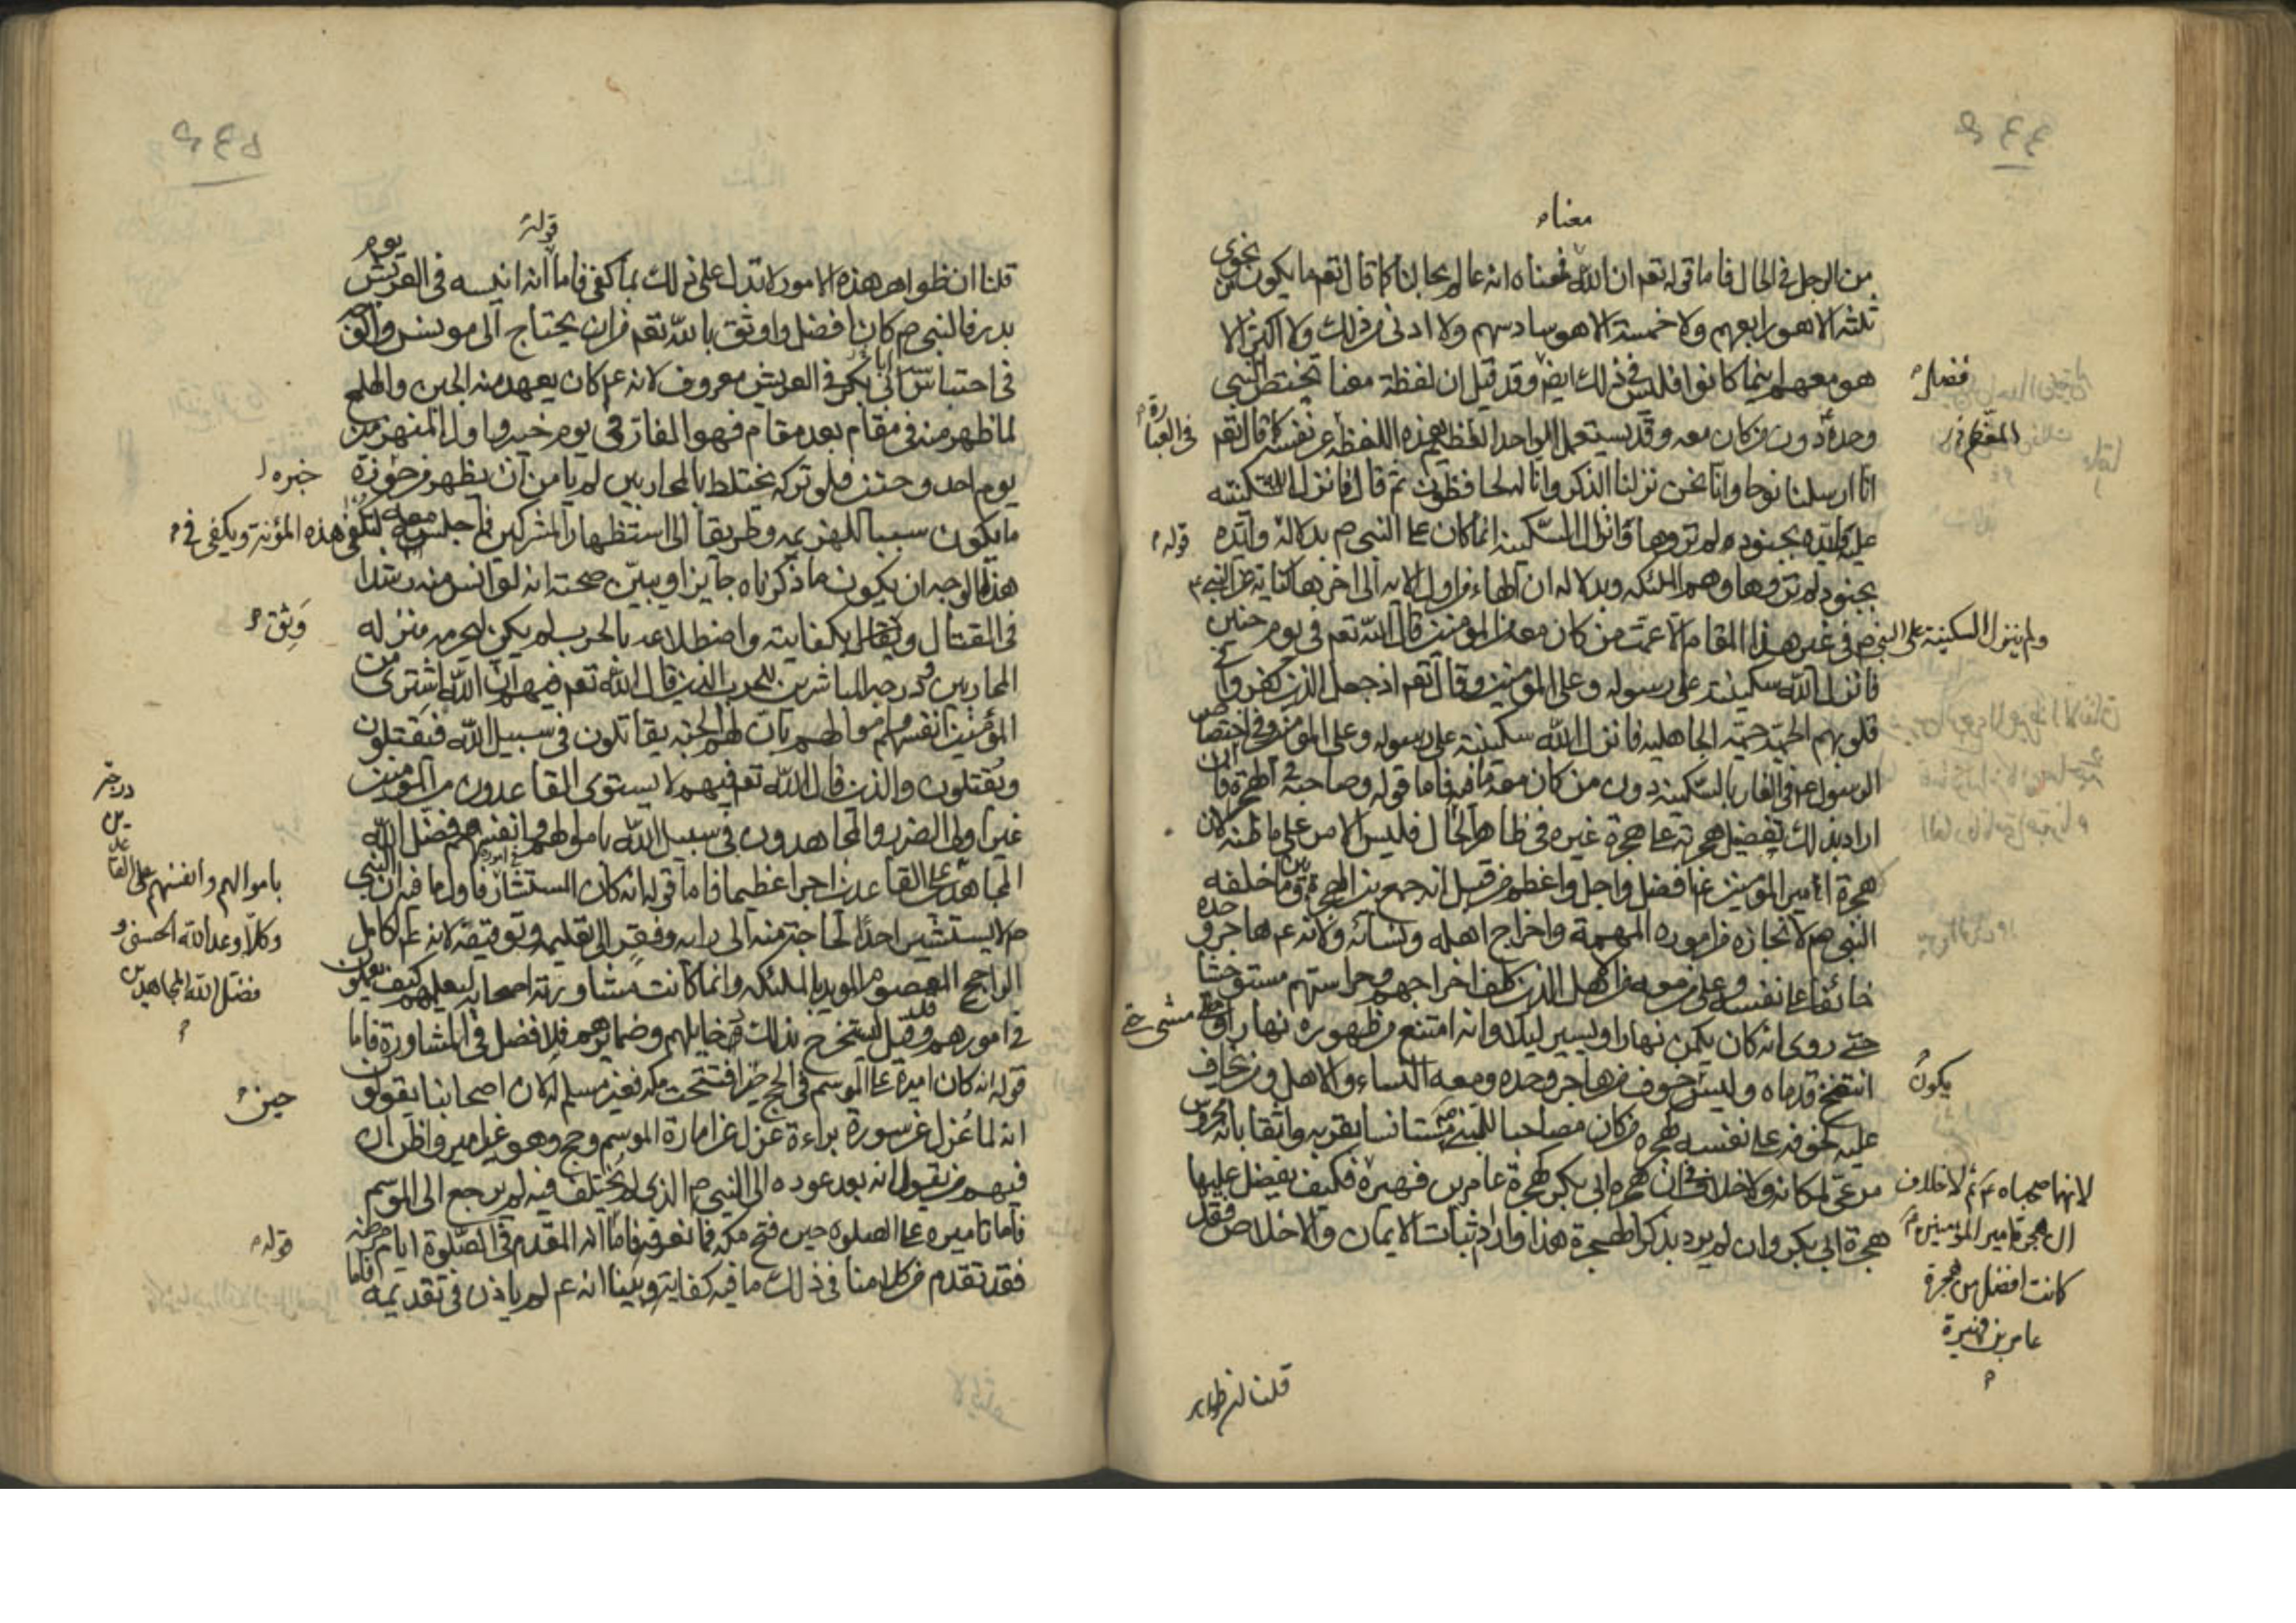 معناه
من الرجل في الحال فاما قوله تعم ان الله معنا فمعناه انه عالم بحالنا كما قال تعم ما يكون من نجوى
ثلثة الا هو رابعهم ولا خمسة الا هو سادسهم ولا ادنى من ذلك ولا اكثر الا
هو معهم اينما كانوا فليس في ذلك ايضا وقد قيل ان لفظة معنا تختص النبي
فضل
وحده دون من كان معه وقد يستعمل الواحد العظيم هذه اللفظة عن نفسه كما قال تعم
المعظم
في العبارة
انا ارسلنا نوحا وانا نحن نزلنا الذكر وانا له لحافظون ثم قال فانزل الله سكينته
عليه وايده بجنود لم تروها وانزال السكينة انما كان على النبي ص بدلالة وايده
قوله
بجنود لم تروها وهم الملئكة وبدلالة ان الهاء من اول الاية الى اخرها كناية عن النبي
ولم ينزل السكينة على النبي ص في غير هذا المقام الا عمت من كان معه من المؤمنين قال الله تعم في يوم حنين
فانزل الله سكينته على رسوله وعلى المؤمنين وقال تعم اذ جعل الذين كفروا في
قلوبهم الحمية حمية الجاهلية فانزل الله سكينته على رسوله وعلى المؤمنين وفي اختصاص
الرسول ع في الغار بالسكينة دون من كان معه ما فيه فاما قوله وصاحبه في الهجرة فان
اراد بذلك تفضيل هجرته على هجرة غيره في ظاهر الحال فليس الامر على ما ظنه لان
هجرة امير المؤمنين عندنا افضل واجل واعظم من قبل انه جمع بين الهجرة وبين ما خلفه
النبي ص لانجازه من اموره المهمة واخراج اهله ونسائه ولانه ع هاجر وحده
خائفا على نفسه وعلى من معه من الاهل الذين كلف اخراجهم وحراستهم مستوحشا
حتى روى انه كان يكمن نهارا ويسير ليلا وانه امتنع من ظهوره نهارا
مشى حتى
انتفخ قدماه وليس خوف من هاجر وحده ومعه النساء والاهل ومن يخاف
يكون
عليه كخوفه على نفسه هجرة من كان مصاحبا للنبي ص مستانسا بقربه واثقا بانه محروس
مرعي لمكانه ولا خلاف في ان هجرة ابي بكر كهجرة عامر بن فهيرة فكيف يفضل عليها
لانهما صحباه ع ثم لا خلاف
ان هجرة امير المؤمنين ع
كانت افضل من هجرة
عامر بن فهيرة
هجرة ابي بكر وان لم يرد بذكر الهجرة هذا واراد ثبات الايمان والاخلاص فقد
قلنا ان ظواهر
قوله
قلنا ان ظواهر هذه الامور لا تدل على ذلك بما كفى فاما انه انيسه في العريش يوم
بدر فالنبي ص كان افضل واوثق بالله تعم من ان يحتاج الى مونس والوجه
في احتباس ابي بكر في العريش معروف لانه ع كان يعهد منه الجبن والهلع
لما ظهر منه في مقام بعد مقام فهو الفار في يوم خيبر واول المنهزمين
يوم احد وحنين فلو تركه يختلط بالمحاربين لم يامن ان يظهر من خوره
ما يكون سببا للهزيمة وطريقا الى استظهار المشركين فاجلسه معه ليكفي هذه المؤنة ويكفى في
هذا الوجه ان يكون ما ذكرناه جايزا ويبين صحته انه لو انس منه رشدا
في القتال وثق بكفايته واضطلاعه بالحرب لم يكن ليحرمه منزلة
وثق
المحاربين ودرجة المباشرين للحرب الذين قال الله تعم فيهم ان الله اشترى من
المؤمنين انفسهم واموالهم بان لهم الجنة يقاتلون في سبيل الله فيقتلون
ويقتلون والذين قال الله تعم فيهم لا يستوى القاعدون من المؤمنين
غير اولي الضرر والمجاهدون في سبيل الله باموالهم وانفسهم فضل الله
المجاهدين على القاعدين اجرا عظيما فاما قوله انه كان المستشار في اموره فاول ما فيه ان النبي
باموالهم وانفسهم على القاعدين درجة
وكلا وعد الله الحسنى و
فضل الله المجاهدين
ص لا يستشير احدا لحاجة منه الى رايه وفقر الى تعليمه وتوقيفه لانه ع الكامل
الراجح المعصوم المويد بالملئكة وانما كانت مشاورته اصحابه ليعلمهم كيف يعملون
في امورهم وقد قيل ليستخرج بذلك دخايلهم وضمايرهم فلا فضل في المشاورة فاما
قوله انه كان اميره على الموسم في الحج حين افتتحت مكة فغير مسلم لان اصحابنا يقولون
حين
انه لما عزل عن سورة براءة عزل عن امارة الموسم وحج وهو غير امير واظن ان
فيهم من يقول انه بعد عوده الى النبي ص الذي لم يختلف فيه لم يرجع الى الموسم
فاما تاميره على الصلوة حين فتح مكة فما نعرفه فاما انه المقدم في الصلوة ايام مرضه
قوله
فقد تقدم من كلامنا في ذلك ما فيه كفاية وبينا انه ع لم ياذن في تقديمه فاما